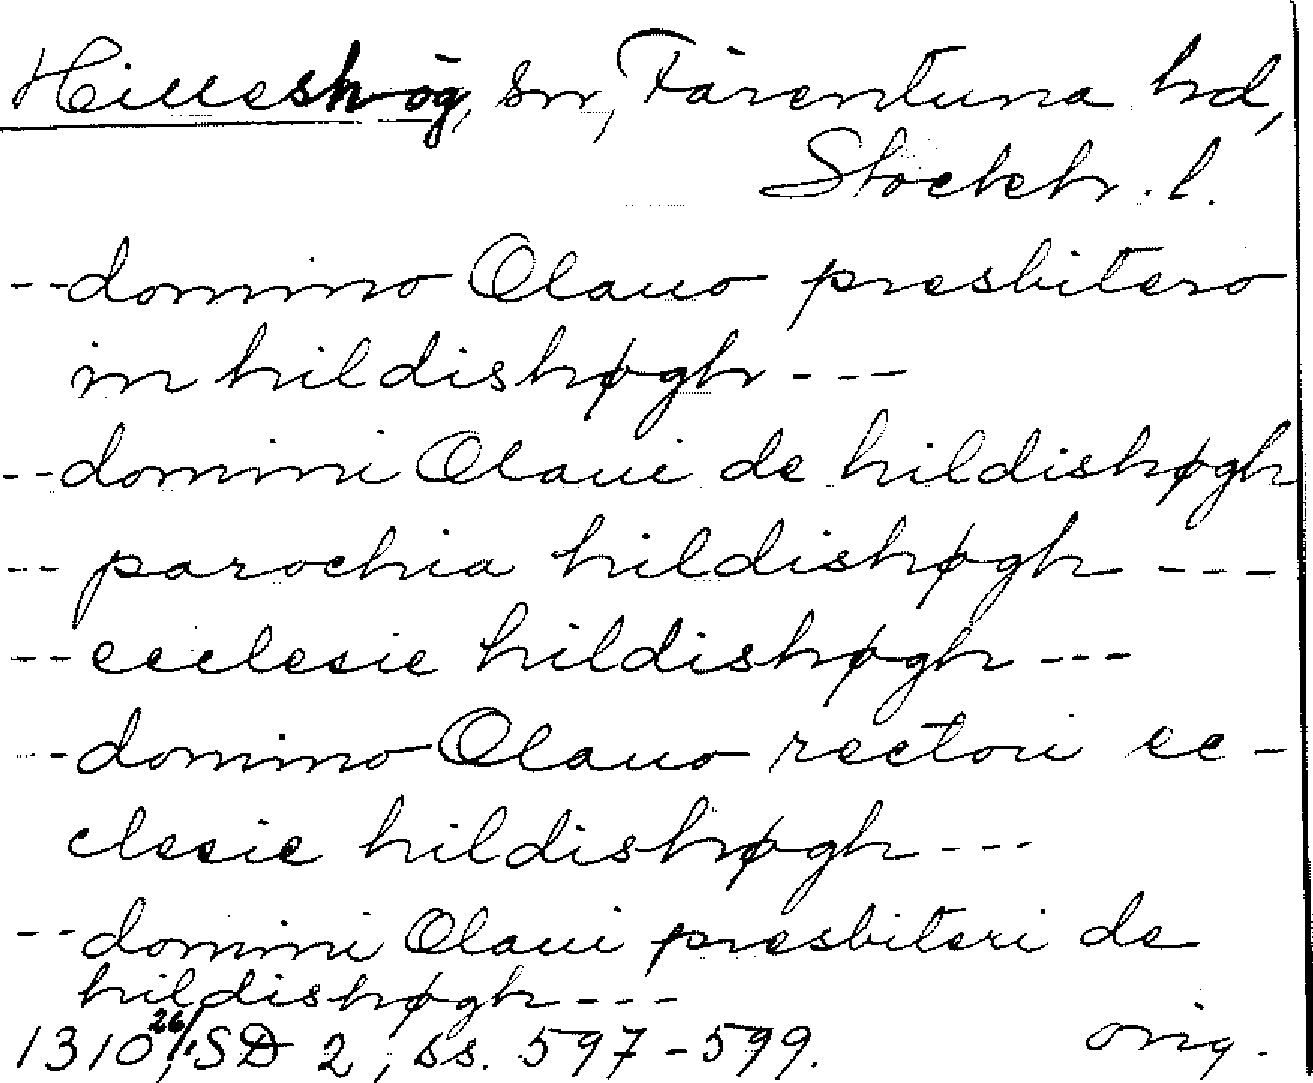 Hilleshög, sn, Färentuna hd,
Stockh. l.
-- domino Olauo presbitero
in hildishøgh ---
-- domini Olaui de hildishøgh
-- parochia hildishøgh ---
-- ecclesie hildishøgh ---
-- domino Olauo rectori ec-
clesie hildishøgh ---
-- domini Olaui presbiteri de
hildishøgh ---
1310 26/1 SD 2, ss. 597-599. orig.